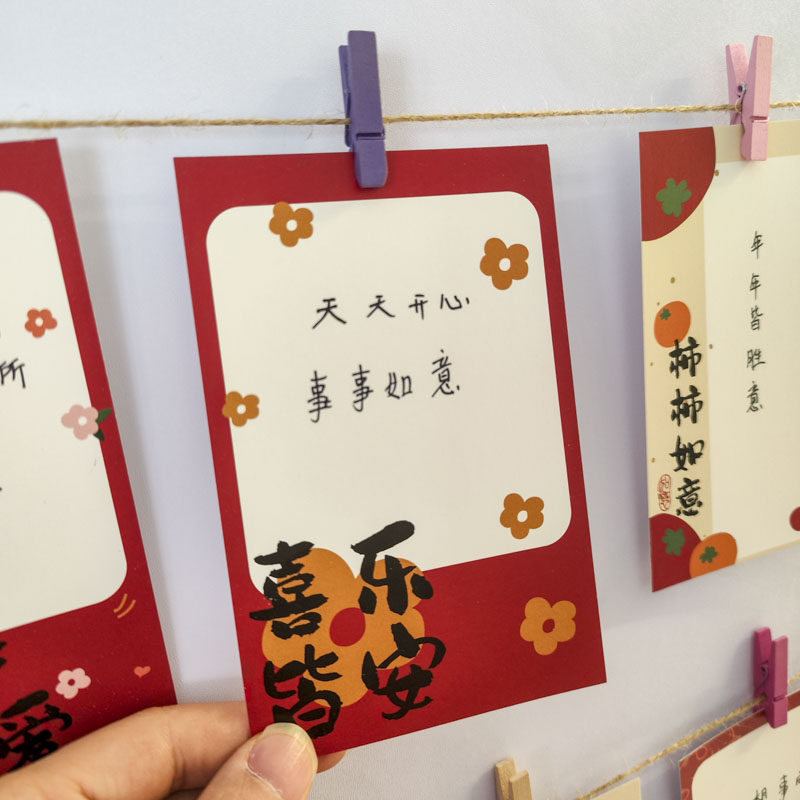 天天开心
事事如意
喜乐
皆安
年年皆胜意
柿柿如意
所
爱